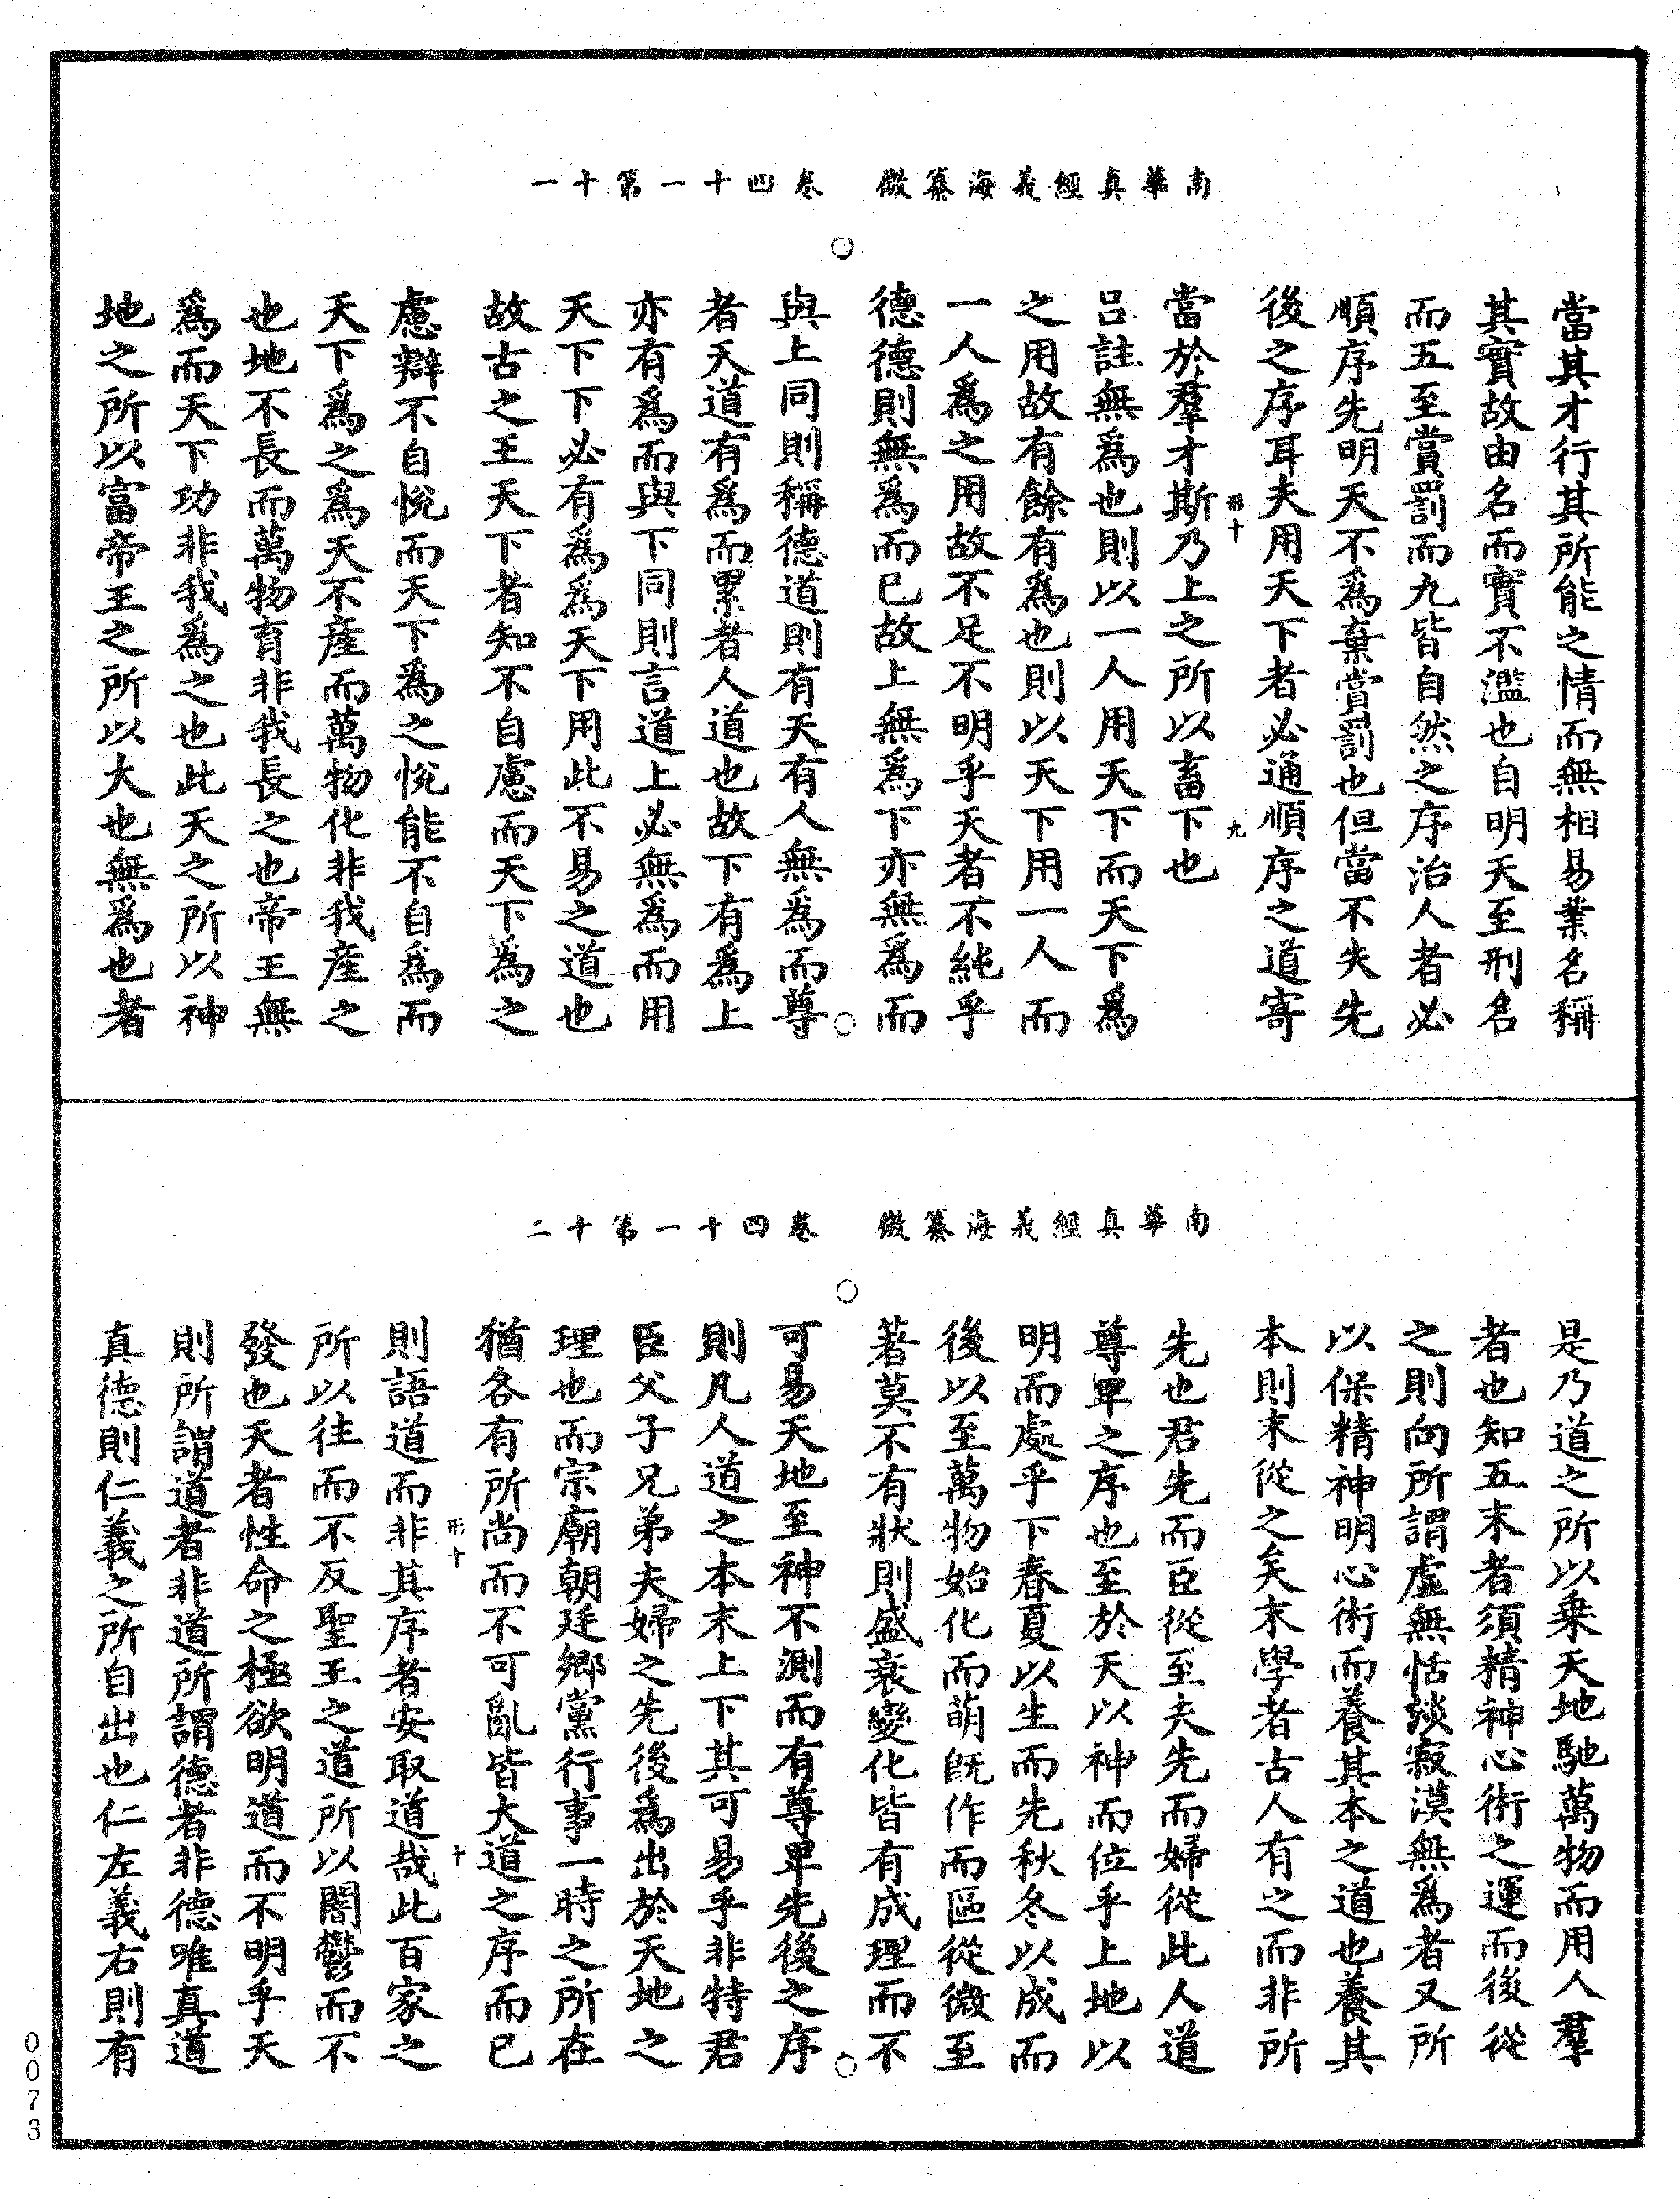 南華真經義海纂微　卷四十一第十一
當其才行其所能之情而無相易業名稱
其實故由名而實不濫也自明天至刑名
而五至賞罰而九皆自然之序治人者必
順序先明天不為棄賞罰也但當不失先
後之序耳夫用天下者必通順序之道寄
形十　九
當於羣才斯乃上之所以畜下也
呂註無為也則以一人用天下而天下爲
之用故有餘有為也則以天下用一人而
一人爲之用故不足不明乎天者不純乎
德德則無為而已故上無為下亦無為而
與上同則稱德道則有天有人無為而尊
者天道有為而累者人道也故下有爲上
亦有為而與下同則言道上必無為而用
天下下必有為爲天下用此不易之道也
故古之王天下者知不自慮而天下為之
慮辯不自悅而天下爲之悅能不自為而
天下爲之為天不產而萬物化非我產之
也地不長而萬物育非我長之也帝王無
爲而天下功非我爲之也此天之所以神
地之所以富帝王之所以大也無為也者
南華真經義海纂微　卷四十一第十二
是乃道之所以乗天地馳萬物而用人羣
者也知五末者須精神心術之運而後從
之則向所謂虛無恬淡寂漠無為者又所
以保精神明心術而養其本之道也養其
本則末從之矣末學者古人有之而非所
先也君先而臣從至夫先而婦從此人道
尊卑之序也至於天以神而位乎上地以
明而處乎下春夏以生而先秋冬以成而
後以至萬物始化而萌既作而區從微至
著莫不有狀則盛衰變化皆有成理而不
可易天地至神不測而有尊卑先後之序
則凡人道之本末上下其可易乎非特君
臣父子兄弟夫婦之先後爲出於天地之
理也而宗廟朝廷鄉黨行事一時之所在
猶各有所尚而不可亂皆大道之序而已
形十　十
則語道而非其序者安取道哉此百家之
所以往而不反聖王之道所以闇鬱而不
發也天者性命之極欲明道而不明乎天
則所謂道者非道所謂德者非德唯真道
真德則仁義之所自出也仁左義右則有
0073